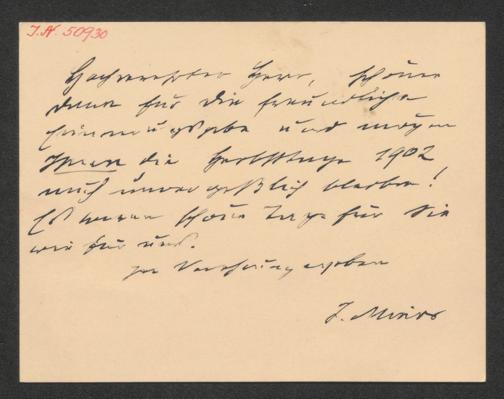 I.N. 50930
Hochverehrter Herr, schönen
Dank für die freundliche
Erinnerungsgabe und mögen
Ihnen die Herbsttage 1902
auch unvergeßlich bleiben!
Es waren schöne Tage für Sie
wie für uns.
In Verehrung ergeben
J. Minor